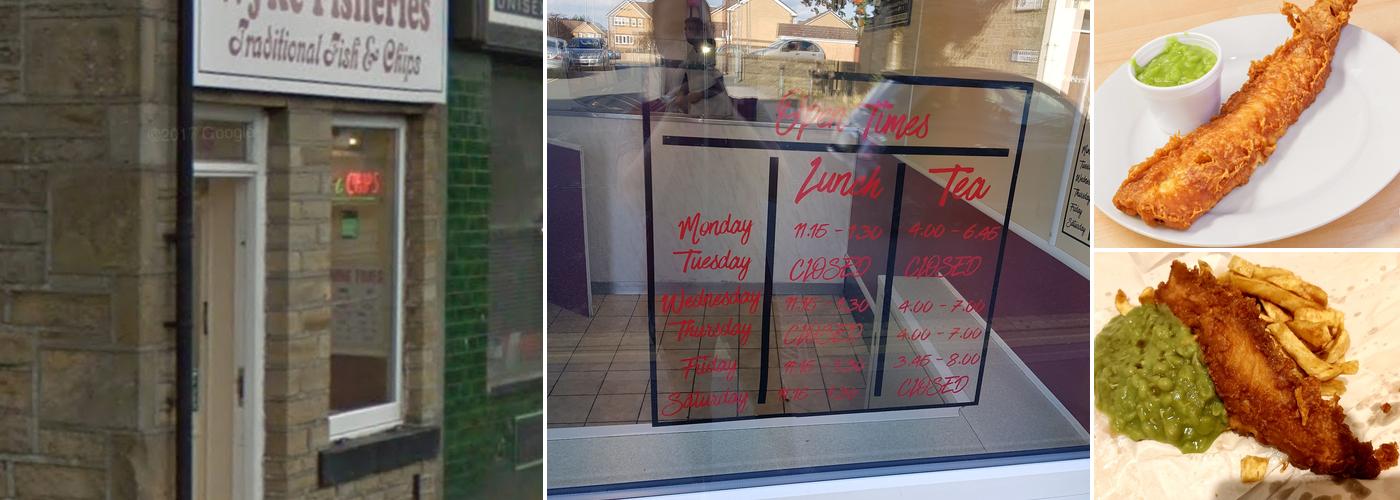 Wyke Fisheries
Traditional Fish & Chips
UNISEX
©2017 Google
CHIPS
Open Times
Lunch Tea
Monday 11.15 - 1.30 4.00 - 6.45
Tuesday CLOSED CLOSED
Wednesday 11.15 - 1.30 4.00 - 7.00
Thursday CLOSED 4.00 - 7.00
Friday 11.15 - 1.30 3.45 - 8.00
Saturday 11.15 - 1.30 CLOSED